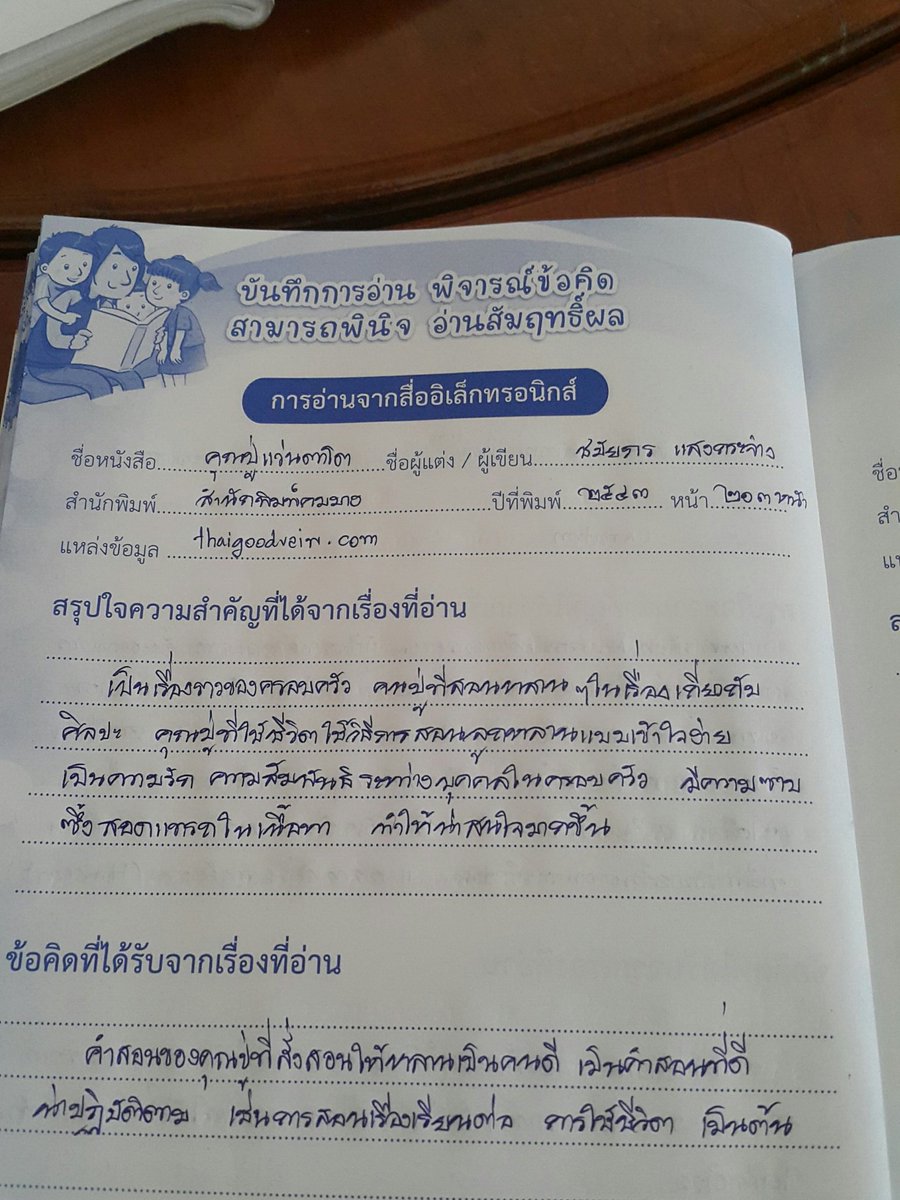 บันทึกการอ่าน พิจารณ์ข้อคิด
สามารถพินิจ อ่านสัมฤทธิ์ผล
การอ่านจากสื่ออิเล็กทรอนิกส์
ชื่อหนังสือ คุณปู่แว่นตาโต ชื่อผู้แต่ง / ผู้เขียน ชมัยภร แสงกระจ่าง
สำนักพิมพ์ สำนักพิมพ์คมบาง ปีที่พิมพ์ ๒๕๔๓ หน้า ๒๐๓ หน้า
แหล่งข้อมูล thaigoodveiw.com
สรุปใจความสำคัญที่ได้จากเรื่องที่อ่าน
เป็นเรื่องราวของครอบครัว คุณปู่ที่สอนหลาน ๆ ในเรื่องเกี่ยวกับ
ศิลปะ คุณปู่ที่ใช้ชีวิต ใช้วิธีการสอนลูกหลานแบบเข้าใจง่าย
เป็นความรัก ความสัมพันธ์ระหว่างบุคคลในครอบครัว มีความซาบ
ซึ้งสอดแทรกในเนื้อหา ทำให้น่าสนใจมากขึ้น
ข้อคิดที่ได้รับจากเรื่องที่อ่าน
คำสอนของคุณปู่ที่สั่งสอนให้หลานเป็นคนดี เป็นคำสอนที่ดี
น่าปฏิบัติตาม เช่นการสอนเรื่องเรียนต่อ การใช้ชีวิต เป็นต้น